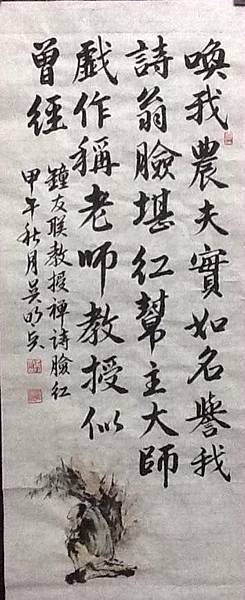 喚我農夫實如名譽我
詩翁臉堪紅幫主大師
戲作稱老师教授似
曾經
鐘友联教授禅詩臉红
甲午秋月吴